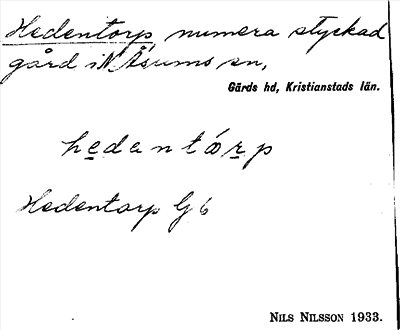 Hedentorp, numera styckad
gård i N Åsums sn,
Gärds hd, Kristianstads län.
hedentórp
Hedentorp G 6
NILS NILSSON 1933.